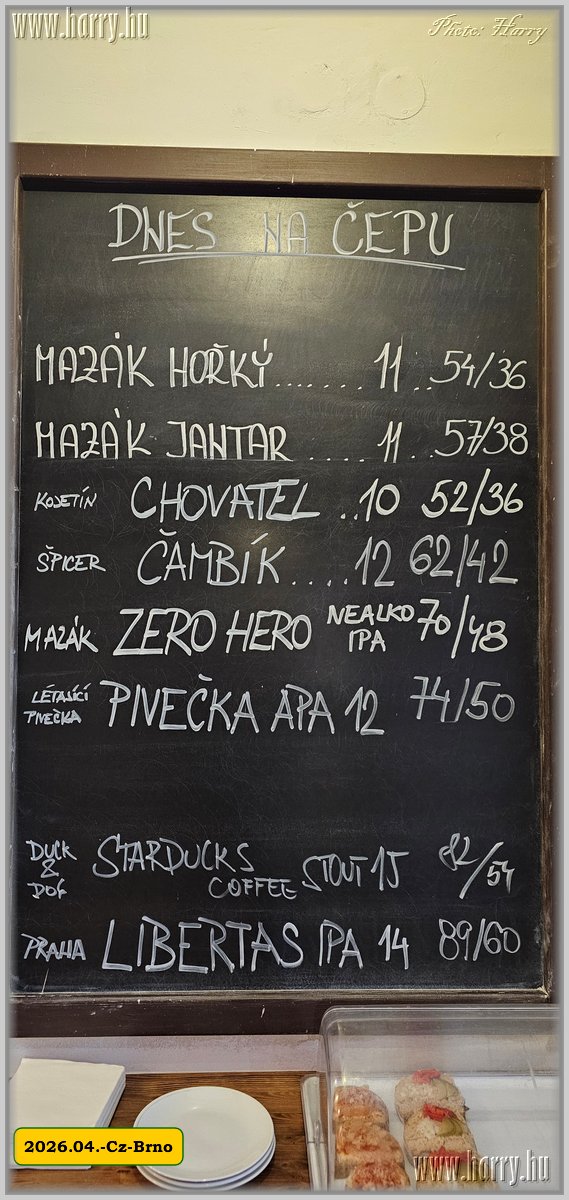 www.horry.hu
Photo: Harry
DNES NA ČEPU
MAZÁK HOŘKÝ....... 11 ..54/36
MAZÁK JANTAR .... 11 ..57/38
KOJETÍN CHOVATEL ..10 52/36
ŠPICER ČAMBÍK....12 62/42
MAZÁK ZERO HERO NEALKO IPA 70/48
LÉTAJÍCÍ PIVEČKA PIVEČKA APA 12 74/50
DUCK & DOG STARDUCKS COFFEE STOUT 15 82/54
PRAHA LIBERTAS IPA 14 89/60
2026.04.-Cz-Brno
www.horry.hu